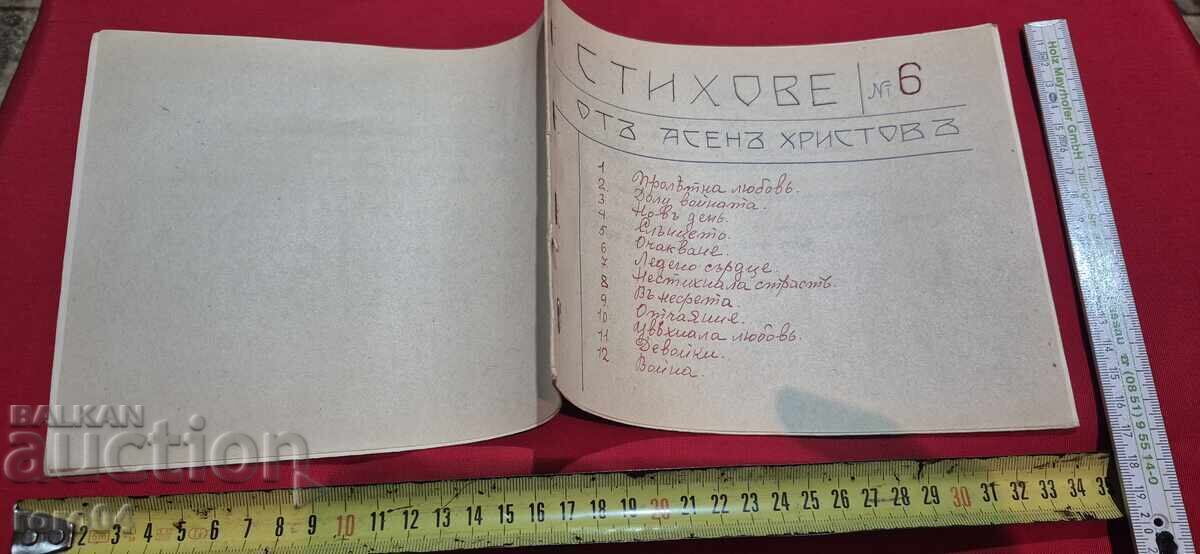 СТИХОВЕ № 6
ОТЪ АСЕНЪ ХРИСТОВЪ
1 Пролѣтна любовь.
2 Долу войната.
3 Новъ день.
4 Слънцето.
5 Очакване.
6 Ледено сърдце.
7 Нестихнала страсть.
8 Въ несрета.
9 Отчаяние.
10 Увѣхнала любовь.
11 Девойки.
12 Война.
BALKAN
auction
1 2 3 4 5 6 7 8 9 10 11 12 13 14 15 16 17 18 19 20 21 22 23 24 25 26 27 28 29 30 31 32 33 34 35
Holz Mayrhofer GmbH
(0851) 9 55 14-0